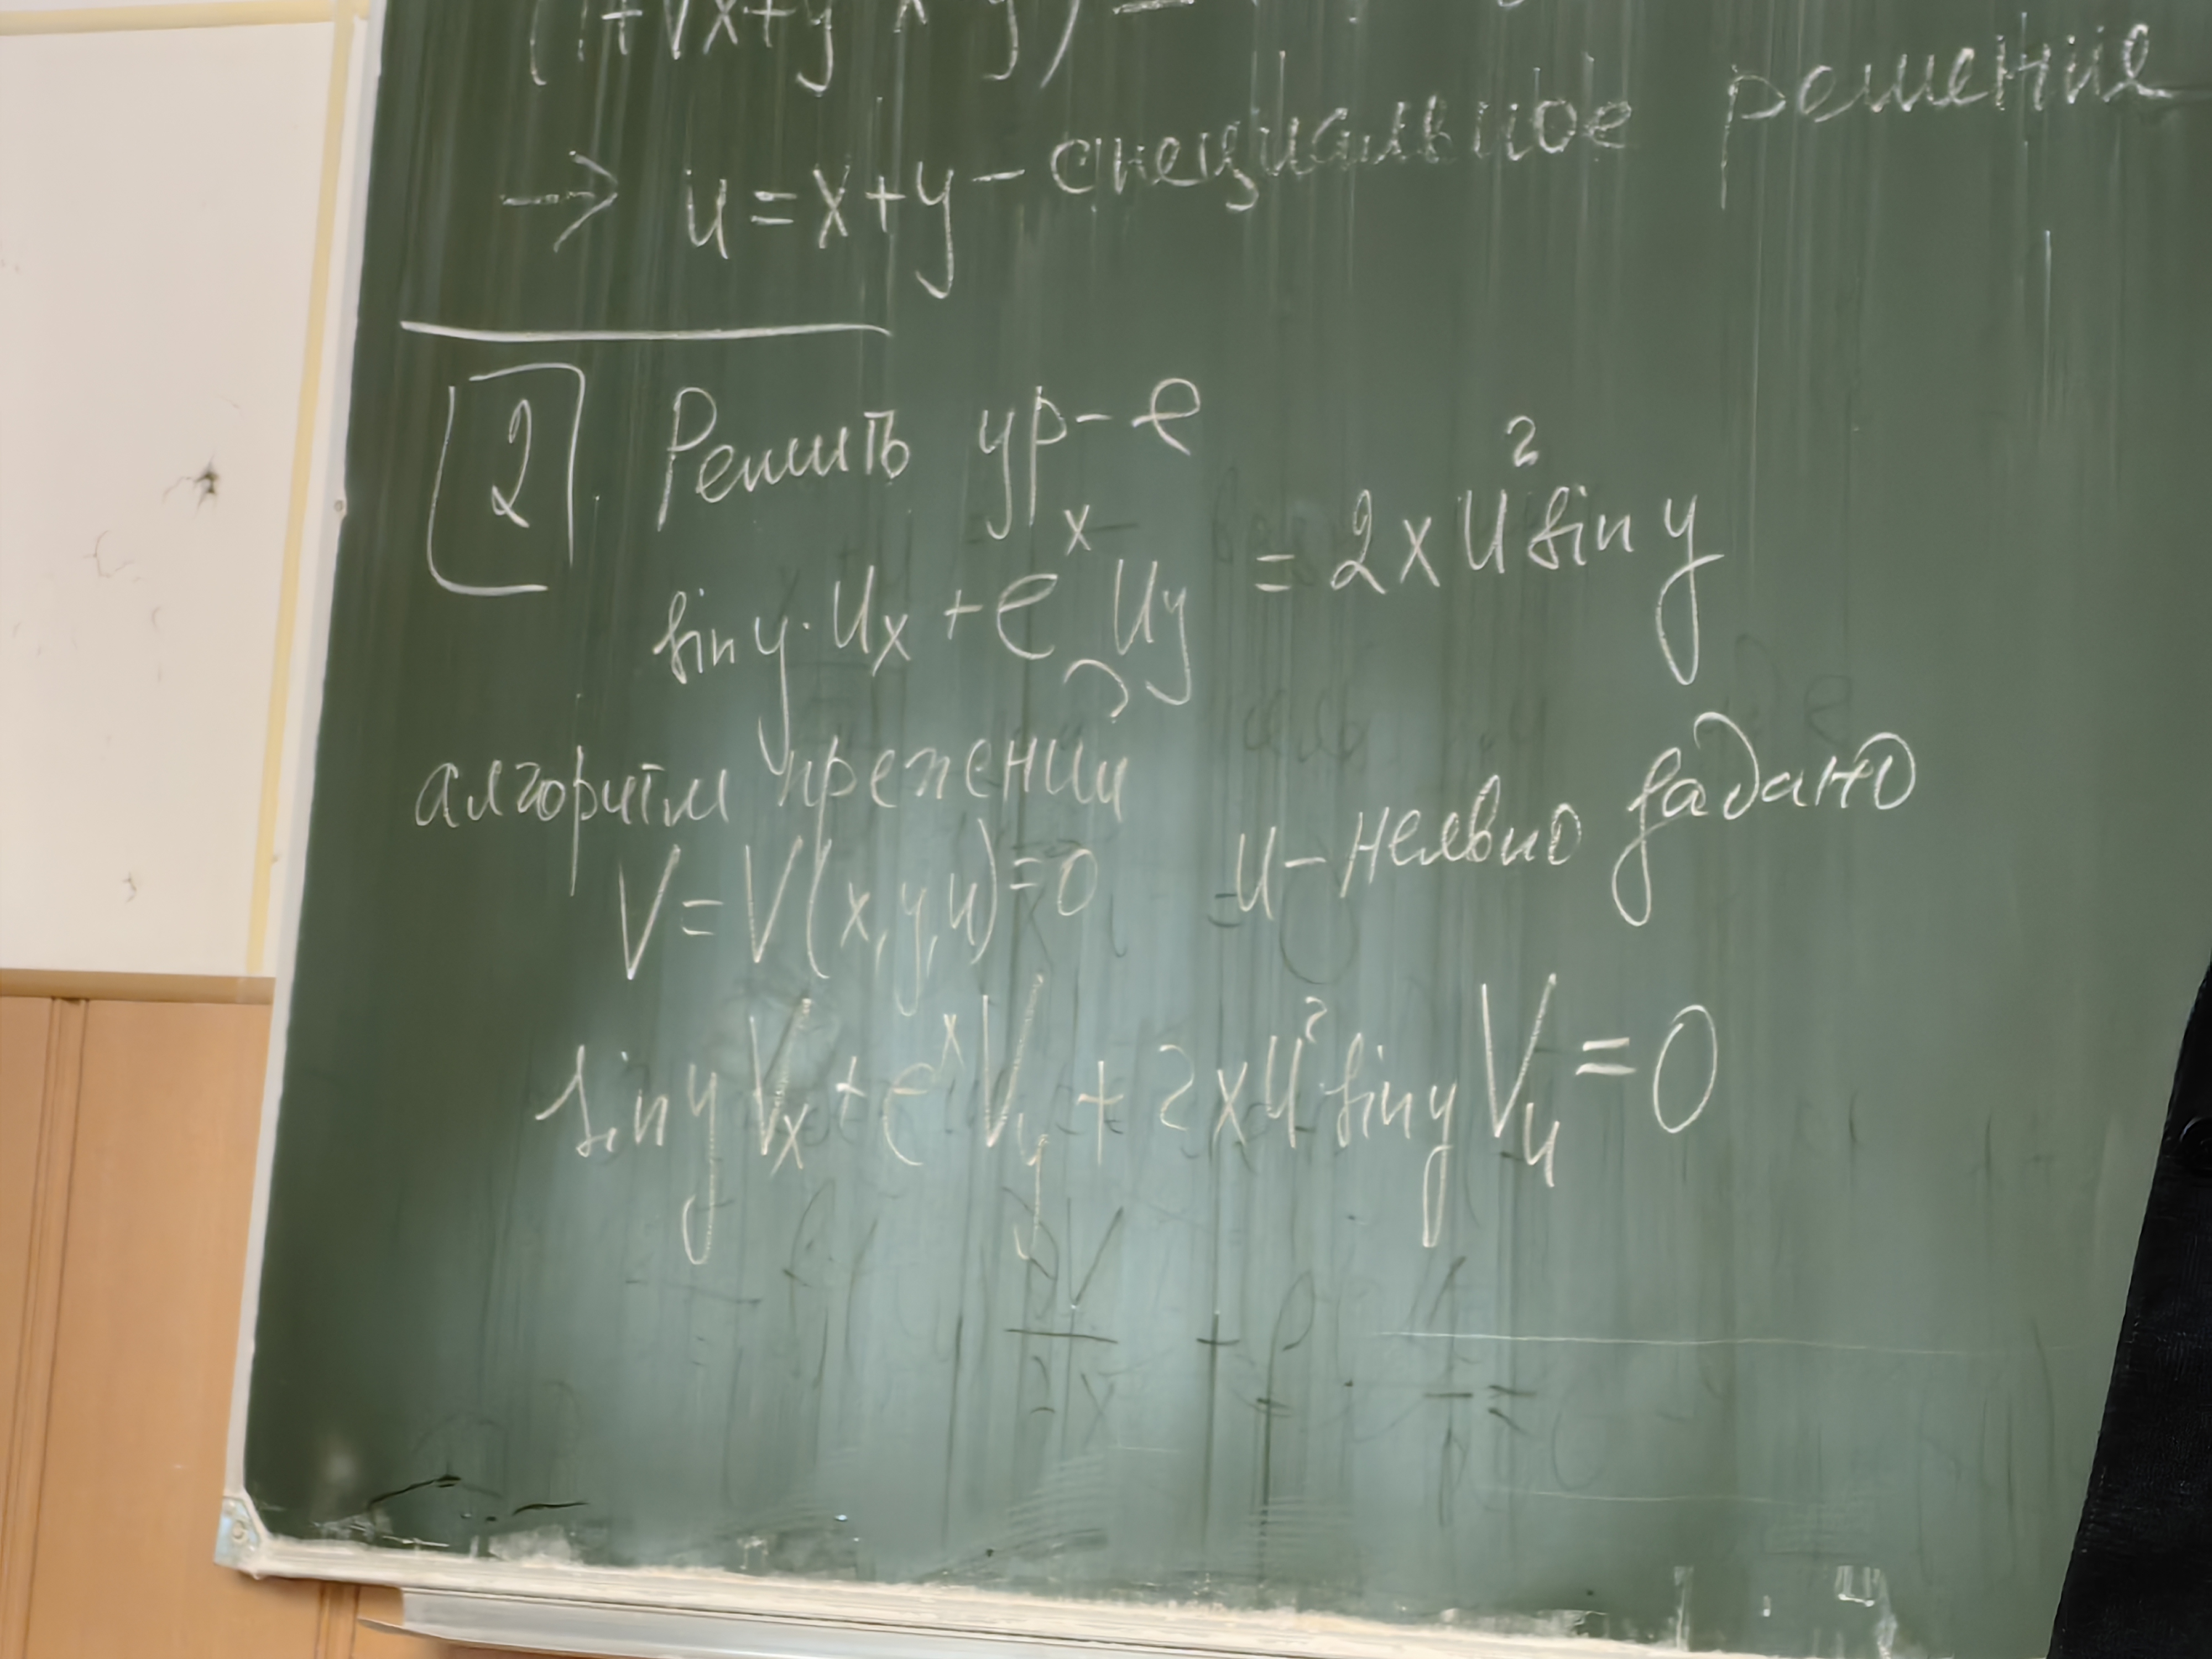 (1+√x+y x y) =
→ u = x+y – специальное решение
2. Решить ур-е
sin y · uₓ + eˣ u_y = 2x u² sin y
алгоритм прежний
V = V(x,y,u) = 0 u – неявно задано
sin y Vₓ + eˣ V_y + 2x u² sin y V_u = 0